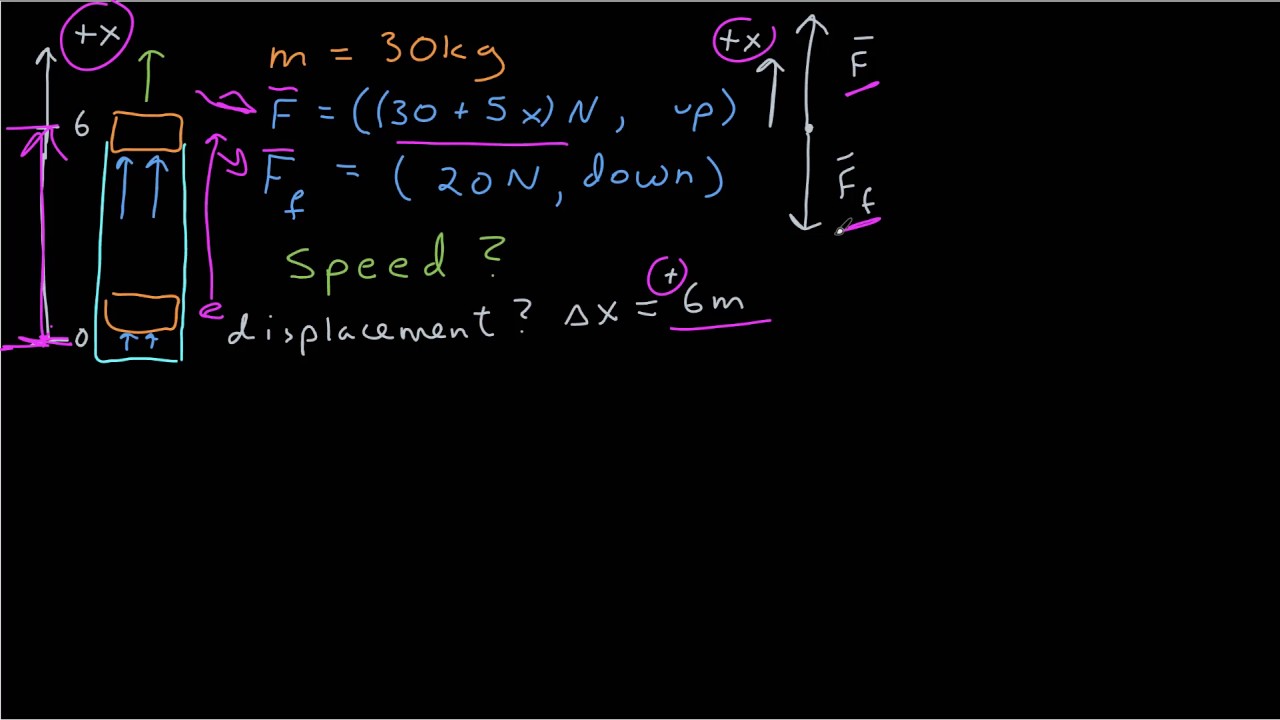 +x
6
0
m = 30kg
F̅ = ((30 + 5x)N, up)
F̅f = (20N, down)
Speed?
displacement? Δx = +6m
+x
F̅
F̅f